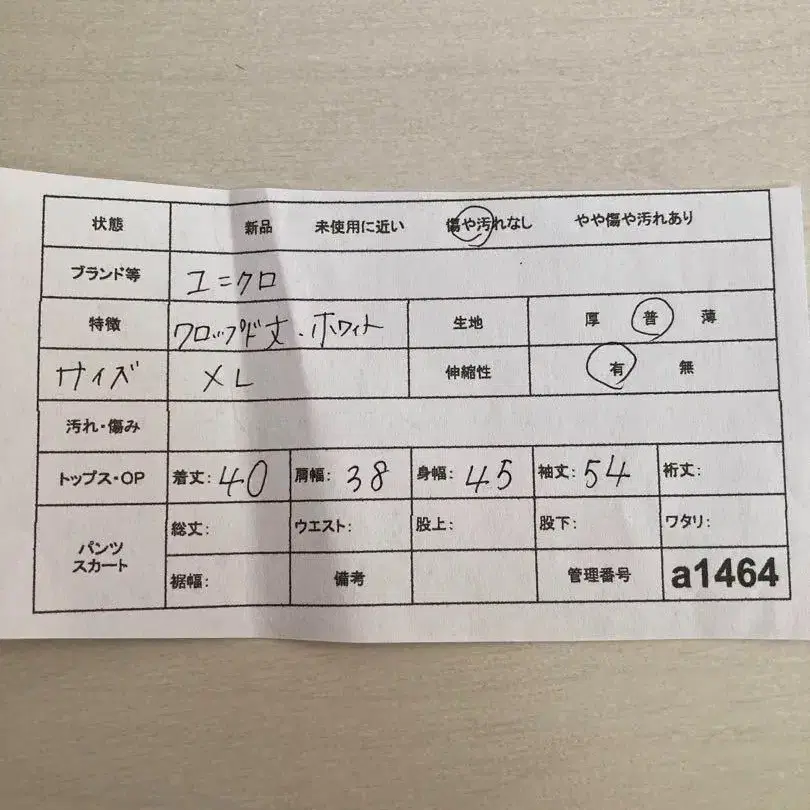 状態 新品 未使用に近い 傷や汚れなし やや傷や汚れあり
ブランド等 ユニクロ
特徴 クロップド丈・ホワイト 生地 厚 普 薄
サイズ XL 伸縮性 有 無
汚れ・傷み
トップス・OP 着丈: 40 肩幅: 38 身幅: 45 袖丈: 54 裄丈:
パンツ
スカート
総丈: ウエスト: 股上: 股下: ワタリ:
裾幅: 備考 管理番号 a1464